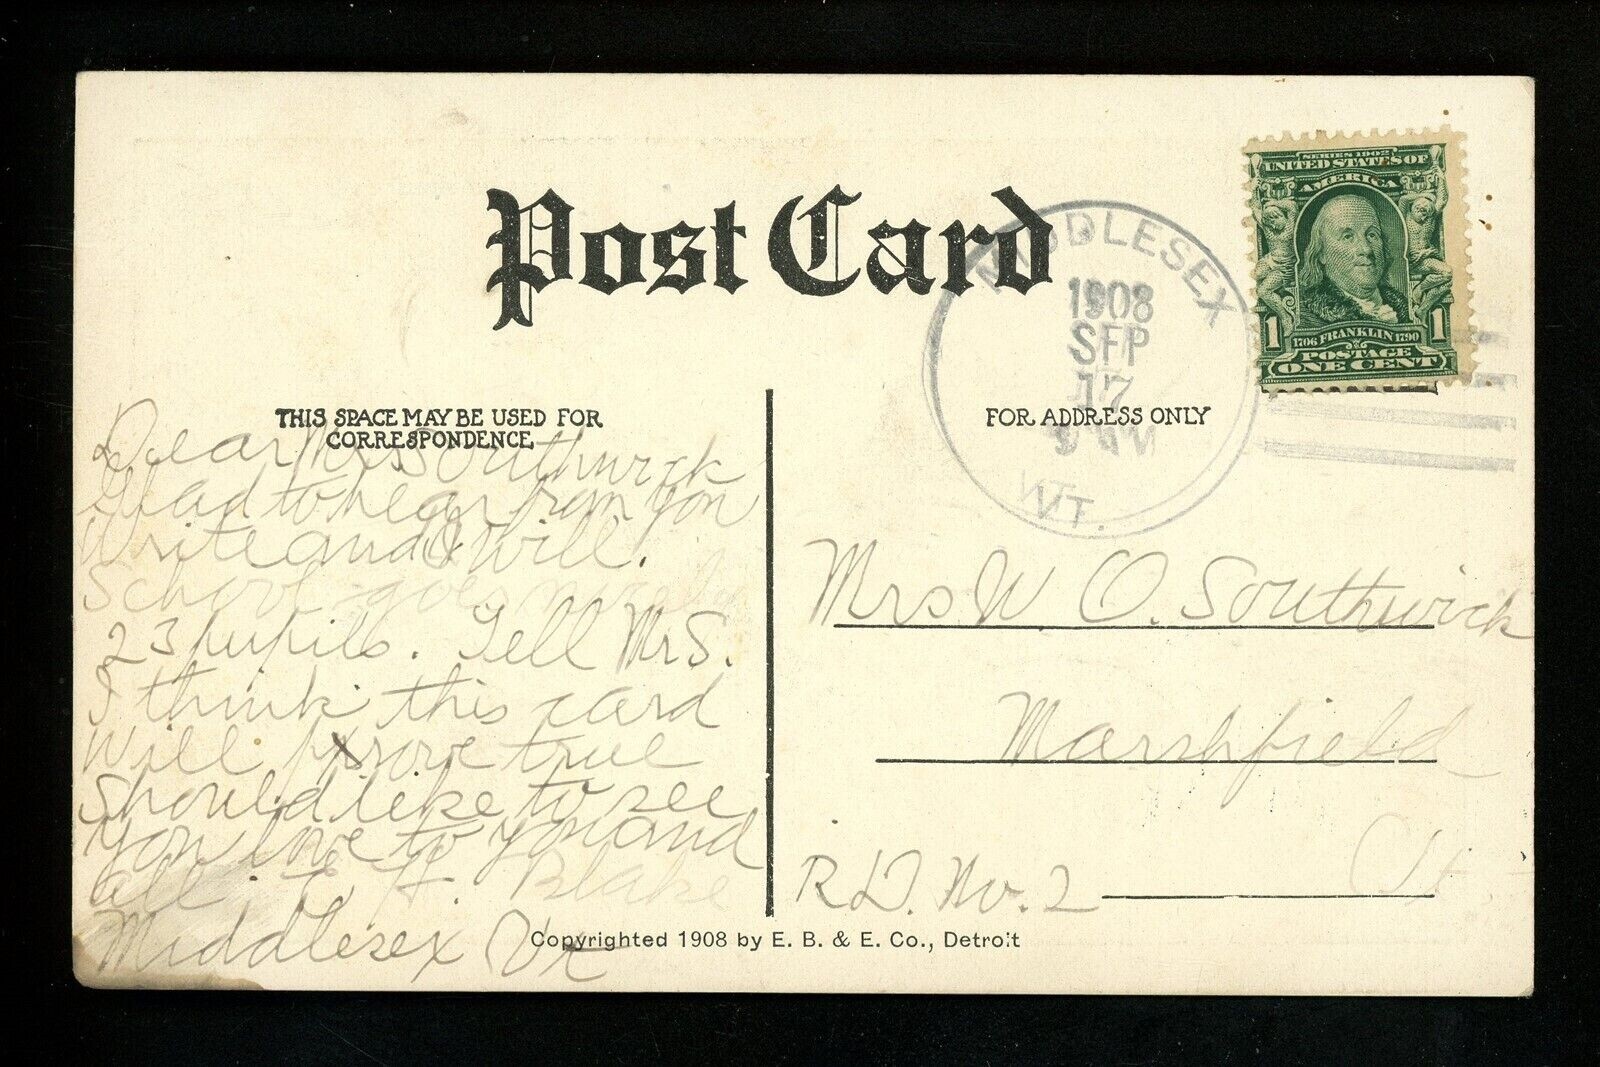 Post Card
THIS SPACE MAY BE USED FOR
CORRESPONDENCE
FOR ADDRESS ONLY
MIDDLESEX
1908
SEP
17
VT.
SERIES 1902
UNITED STATES OF
AMERICA
1 1706 FRANKLIN 1790 1
POSTAGE
ONE CENT
Dear Mrs Southwick
Glad to hear from you
Write and I will.
School goes nicely
23 pupils. Tell Mr S.
I think this card
will prove true
Should like to see
you love to you and
all. E. H. Blake
Middlesex Vt
Mrs W. O. Southwick
Marshfield
Vt.
R.D. No. 2
Copyrighted 1908 by E. B. & E. Co., Detroit